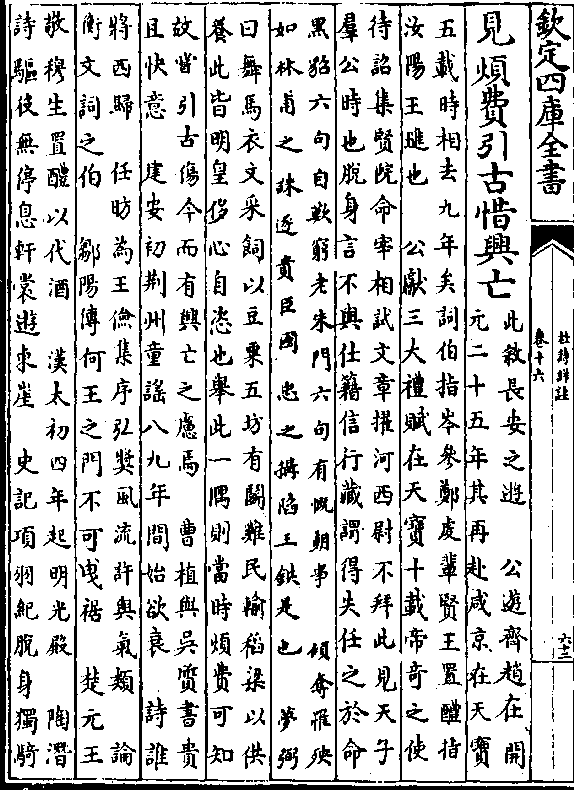 欽定四庫全書
杜詩詳註
卷十六
見煩費引古惜興亡
此敘長安之遊 公遊齊趙在開
元二十五年其再赴咸京在天寶
五載時相去九年矣詞伯指岑參鄭虔輩賢王置醴指
汝陽王璡也 公獻三大禮賦在天寶十載帝奇之使
待詔集賢院命宰相試文章擢河西尉不拜此見天子
羣公時也脫身言不與仕籍信行藏謂得失任之於命
黑貂六句自歎窮老朱門六句有慨朝事 傾奪罹殃
如林甫之誅逐貴臣國忠之搆陷王鉷是也 夢弼
曰舞馬衣文采飼以豆粟五坊有鬭雞民輸稻粱以供
養此皆明皇侈心自恣也舉此一隅則當時煩費可知
故嘗引古傷今而有興亡之慮焉 曹植與吳質書貴
且快意 建安初荆州童謡八九年間始欲衰 詩誰
將西歸 任昉為王儉集序弘奬風流許與氣類 論
衡文詞之伯 鄒陽傳何王之門不可曳裾 楚元王
敬穆生置醴以代酒 漢太初四年起明光殿 陶潛
詩驅使無停息軒裳遊東崖 史記項羽紀脫身獨騎